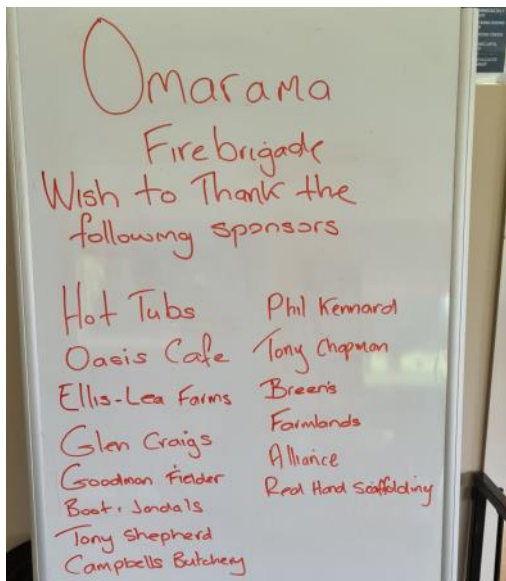 Omarama
Firebrigade
Wish to Thank the
following sponsors
Hot Tubs
Oasis Cafe
Ellis-Lea Farms
Glen Craigs
Goodman Fielder
Boot & Jandals
Tony Shepherd
Campbells Butchery
Phil Kennard
Tony Chapman
Breen's
Farmlands
Alliance
Red Hand Scaffolding